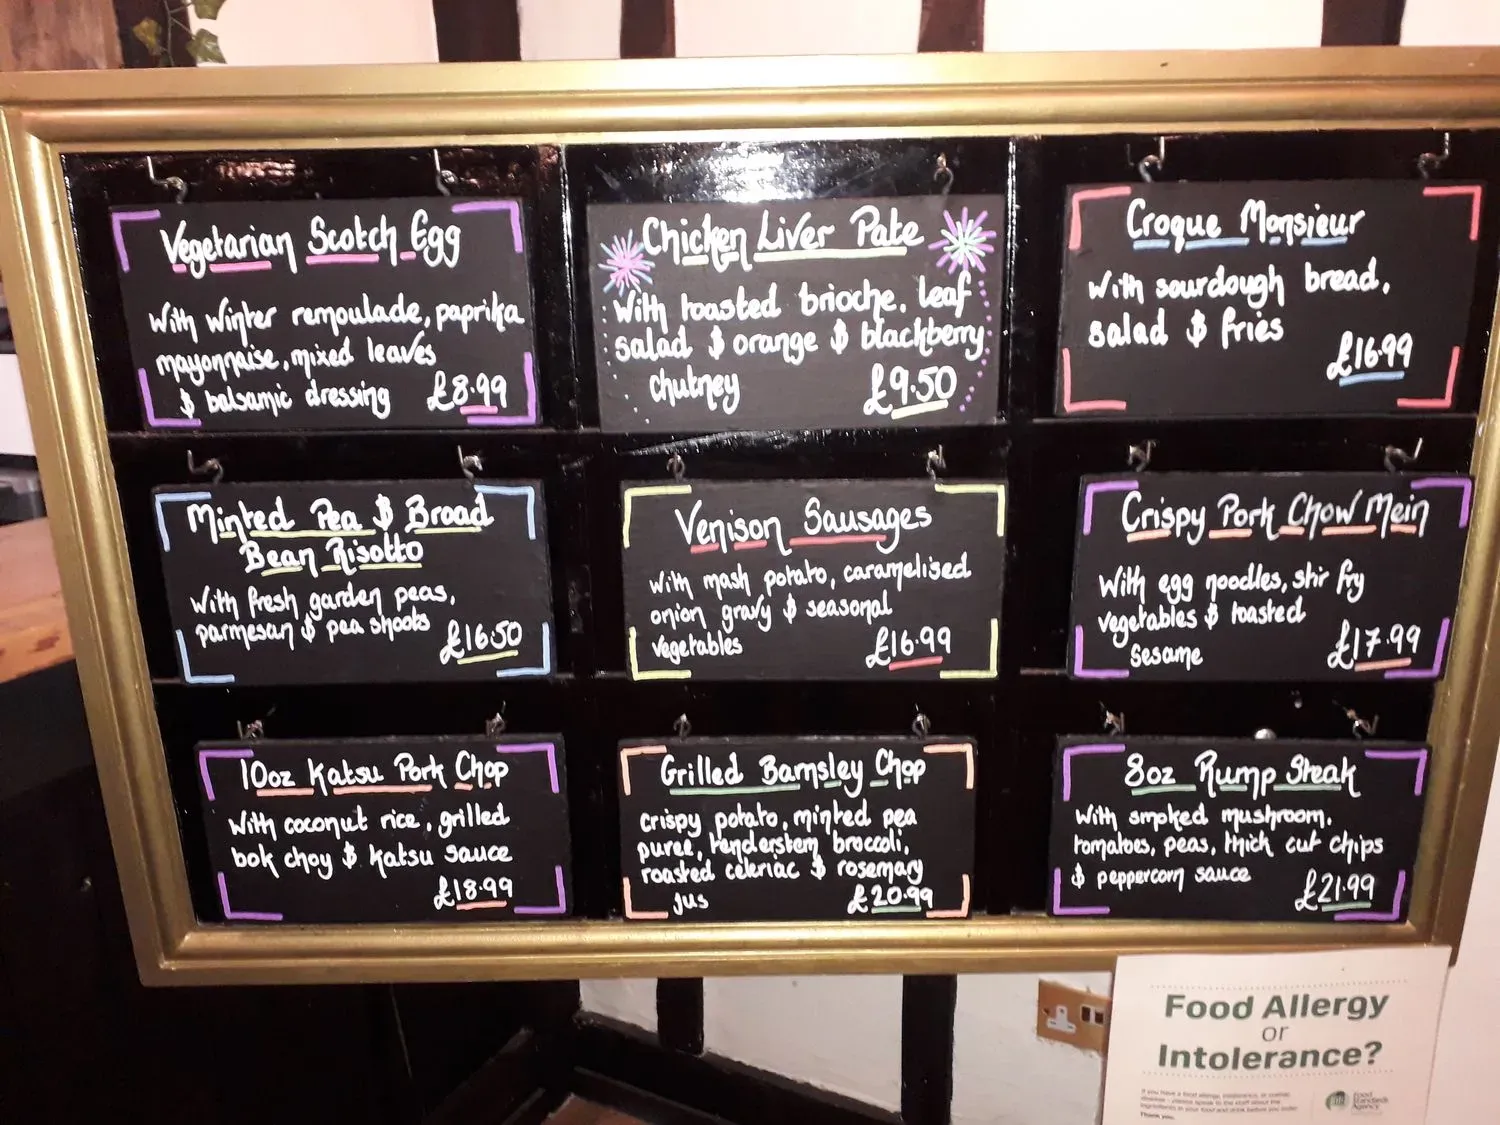 Vegetarian Scotch Egg
With Winter remoulade, paprika
mayonnaise, mixed leaves
$ balsamic dressing £8.99
Chicken Liver Pate
With toasted brioche, leaf
salad $ orange $ blackberry
chutney £9.50
Croque Monsieur
With sourdough bread,
salad $ fries
£16.99
Minted Pea $ Broad
Bean Risotto
With fresh garden peas,
parmesan $ pea shoots
£16.50
Venison Sausages
With mash potato, caramelised
onion gravy $ seasonal
vegetables £16.99
Crispy Pork Chow Mein
With egg noodles, stir fry
vegetables $ toasted
Sesame £17.99
10oz Katsu Pork Chop
With coconut rice, grilled
bok choy $ Katsu sauce
£18.99
Grilled Barnsley Chop
crispy potato, minted pea
puree, tenderstem broccoli,
roasted celeriac $ rosemary
jus £20.99
8oz Rump Steak
With smoked mushroom,
tomatoes, peas, thick cut chips
$ peppercorn sauce £21.99
Food Allergy
or
Intolerance?
If you have a food allergy, intolerance, or coeliac
disease - please speak to the staff about the
ingredients in your food and drink before you order.
Thank you.
Food
Standards
Agency